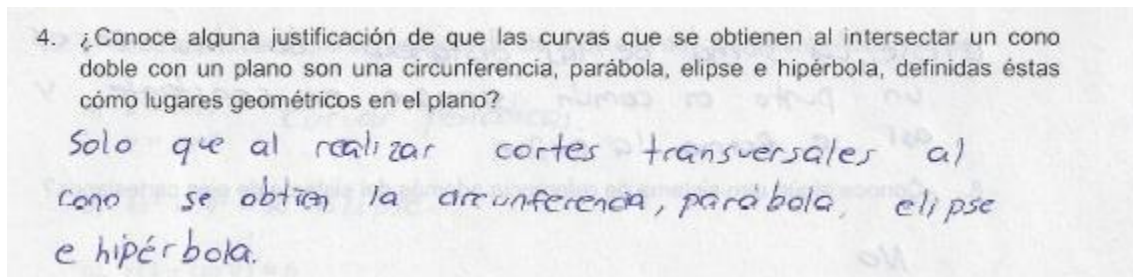 4. ¿Conoce alguna justificación de que las curvas que se obtienen al intersectar un cono
doble con un plano son una circunferencia, parábola, elipse e hipérbola, definidas éstas
cómo lugares geométricos en el plano?
Solo que al realizar cortes transversales al
cono se obtien la circunferencia, parabola, elipse
e hipérbola.
No